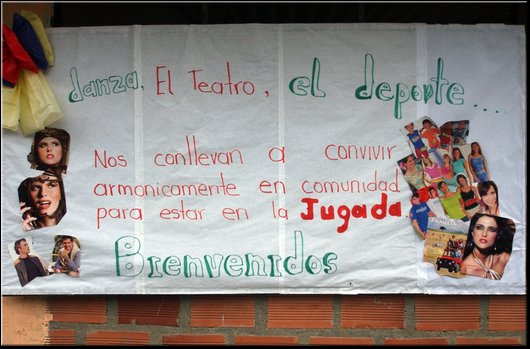 danza, El Teatro, el deporte....
Nos conllevan a convivir
armonicamente en comunidad
para estar en la Jugada..
Bienvenidos